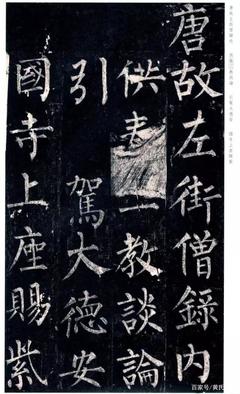 唐故左街僧錄內
供奉三教談論
引駕大德安
國寺上座賜紫
百家号/黄氏